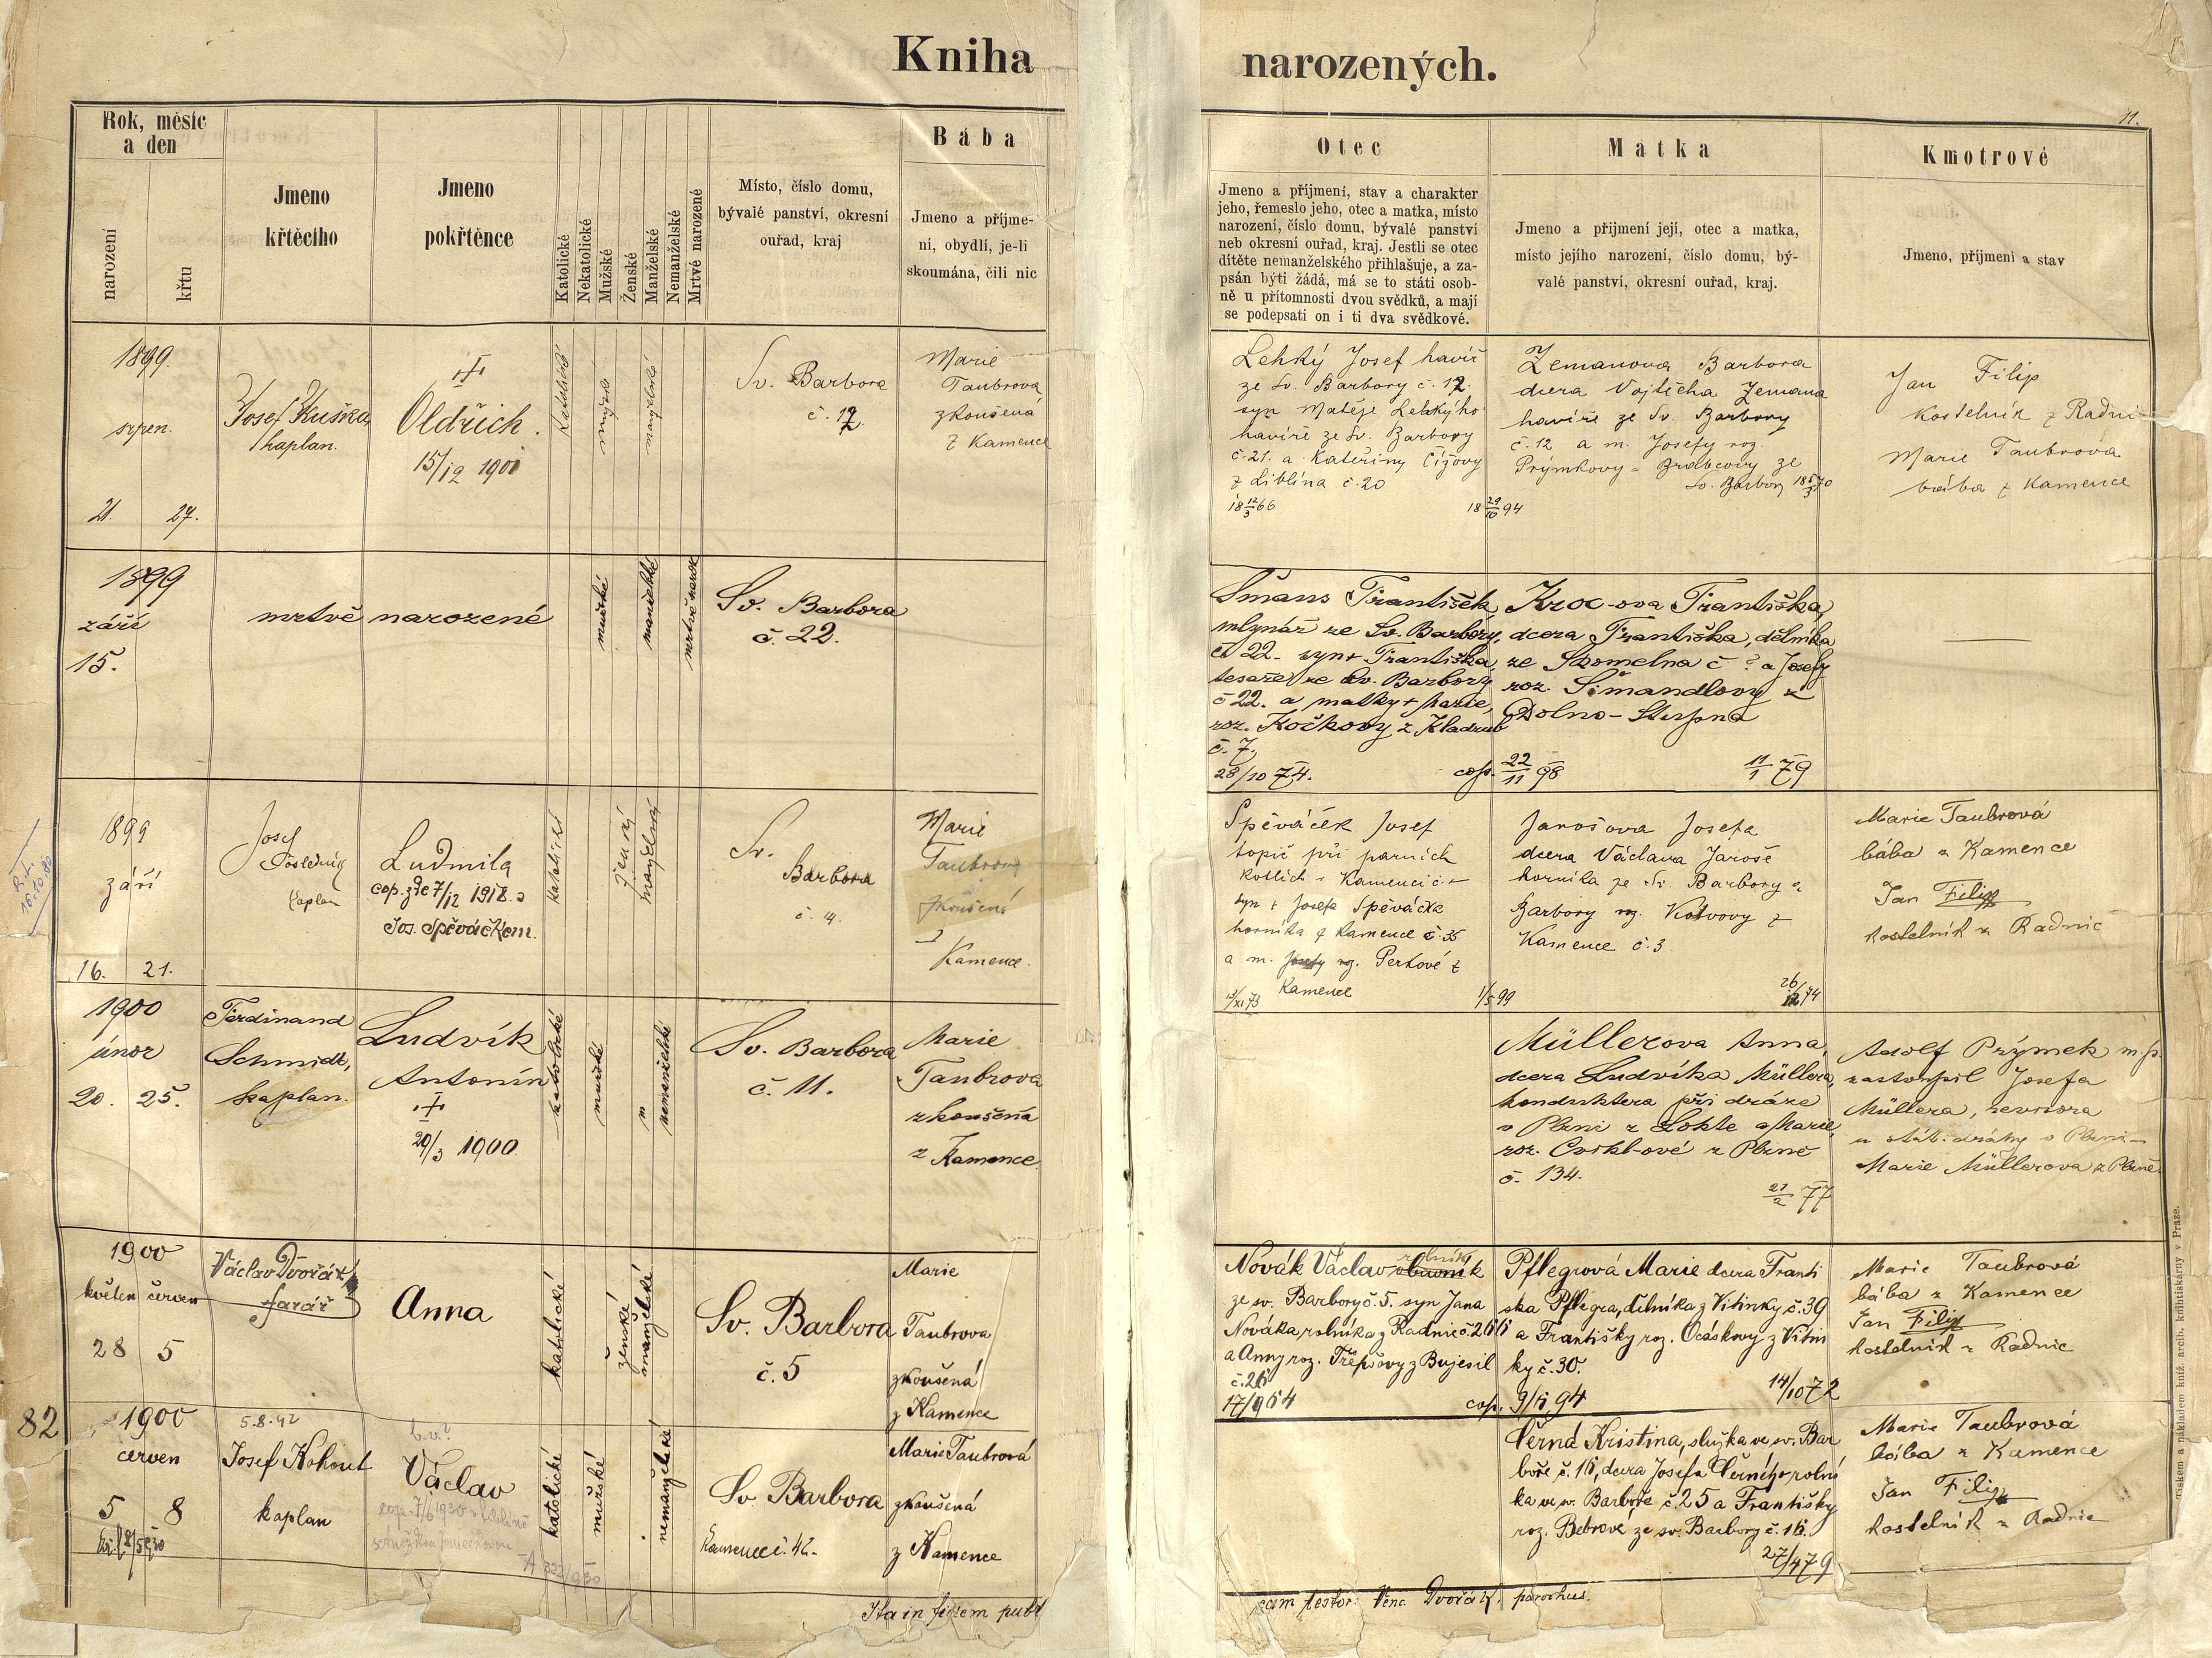 Kniha narozených.
11.
Rok, měsíc
a den
narození
křtu
Jmeno
křtěcího
Jmeno
pokřtěnce
Katolické
Nekatolické
Mužské
Ženské
Manželské
Nemanželské
Mrtvé narozené
Místo, číslo domu,
bývalé panství, okresní
ouřad, kraj
Bába
Jmeno a příjme-
ní, obydlí, je-li
skoumána, čili nic
Otec
Jmeno a příjmení, stav a charakter
jeho, řemeslo jeho, otec a matka, místo
narození, číslo domu, bývalé panství
neb okresní ouřad, kraj. Jestli se otec
dítěte nemanželského přihlašuje, a za-
psán býti žádá, má se to státi osob-
ně u přítomnosti dvou svědků, a mají
se podepsati on i ti dva svědkové.
Matka
Jmeno a přijmení její, otec a matka,
místo jejího narození, číslo domu, bý-
valé panství, okresní ouřad, kraj.
Kmotrové
Jmeno, příjmení a stav
1899.
srpen.
21. 27.
Josef Kuška,
kaplan.
Oldřich.
15/12 1901
katolické
mužské
manželské
Sv. Barbora
č. 12.
Marie
Taubrova
zkoušená
z Kamence
Lehký Josef havíř
ze Sv. Barbory č. 12.
syn Matěje Lehkýho
havíře ze Sv. Barbory
č. 21. a Kateřiny Čížovy
z Liblína č. 20
18 12/3 66
18 29/10 94
Zemanova Barbora
dcera Vojtěcha Zemana
havíře ze Sv. Barbory
č. 12 a m. Josefy roz.
Prýmkovy - Brabcovy ze
Sv. Barbory
Jan Filip
kostelník z Radnic
Marie Taubrova
bába z Kamence
1899
září
15.
mrtvě narozené
mužské
manželské
mrtvě naroz
Sv. Barbora
č. 22.
Šmaus František,
mlynář ze Sv. Barbory,
č 22. syn + Františka,
tesaře ze Sv. Barbory
č 22. a matky + Marie,
roz. Kočkovy z Kladrub
č. 7.
28/10 74.
cop. 22/11 98
Kroc-ova Františka,
dcera Františka, dělníka
ze Skomelna č ? a Josefy
roz. Šimandlovy z
Dolno-Stupna
11/1 79
1899
září
16. 21.
Josef
Poslední
kaplan
Ludmila
cop. zde 7/12 1918. s
Jos. Spěváčkem.
katolické
ženský
manželský
Sv.
Barbora
č. 4.
Marie
Taubrova
zkoušená
z
Kamence.
Spěváček Josef
topič při parních
kotlích v Kamenci č. +
syn + Josefa Spěváčka
horníka z Kamence č. 35
a m. Josefy roz. Perkové z
Kamence
13/XI 73
1/5 99
Jarošova Josefa
dcera Václava Jaroše
horníka ze Sv. Barbory a
Barbory roz. Kotvovy z
Kamence č. 3
26/12 74
Marie Taubrová
bába z Kamence
Jan Filip
kostelník z Radnic
1900
únor
20. 25.
Ferdinand
Schmidt,
kaplan.
Ludvík
Antonín
29/3 1900
katolické
mužské
nemanželské
Sv. Barbora
č. 11.
Marie
Taubrova
zkoušená
z Kamence
Müllerova Anna,
dcera Ludvíka Müllera,
konduktera při dráze
v Plzni z Lokte a Marie,
roz. Cviklové z Plzně
č. 134.
21/2 77
Adolf Prýmek m.p.
zastoupil Josefa
Müllera, revisora
u stát. dráhy v Plzni-
Marie Müllerova z Plzně
1900
květen červen
28 5
Václav Dvořák,
farář
Anna
katolické
ženské
manželské
Sv. Barbora
č. 5
Marie
Taubrova
zkoušená
z Kamence
Novák Václav obuvník
rolník
ze sv. Barbory č. 5. syn Jana
Nováka rolníka z Radnic č. 266
a Anny roz. Třepšovy z Bujesil
č. 26
17/9 64
cop. 9/5 94
Pflegrová Marie dcera Franti
ska Pflegra, dělníka z Vitinky č. 39
a Františky roz. Ocáskovy z Vitin
ky č. 30.
14/10 72
Marie Taubrová
bába z Kamence
Jan Filip
kostelník z Radnic
82
1900
červen
5 8
5.8.42
Josef Kohout
kaplan
b.v.?
Václav
cop. 7/6 1930 v Liblíně
katolické
mužské
nemanželské
Sv. Barbora
Kamenec č. 42.
Marie Taubrová
zkoušená
z Kamence
Černá Kristina, služka ve sv. Bar
boře č. 16, dcera Josefa Černýho rolní
ka ve sv. Barboře č. 25 a Františky
roz. Bebrové ze sv. Barbory č. 16.
27/4 79
Marie Taubrová
bába z Kamence
Jan Filip
kostelník z Radnic
Ita in fidem publicam testor: Venc. Dvořák, parochus.